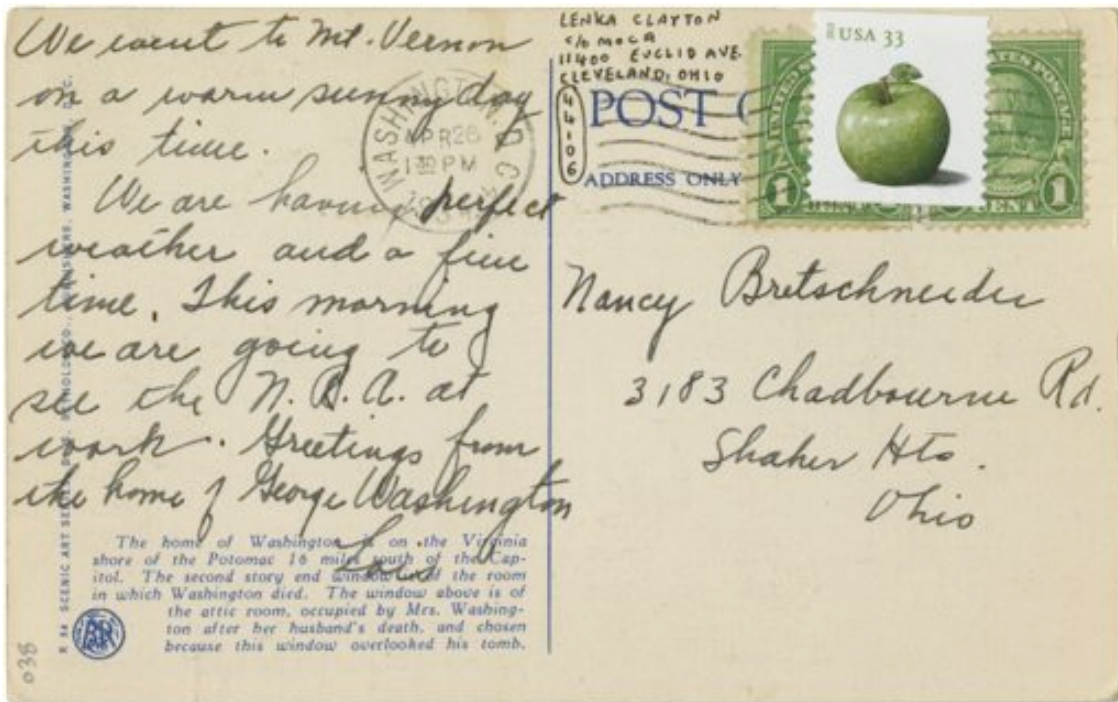 We went to Mt. Vernon
on a warm sunny day
this time.
We are having perfect
weather and a fine
time. This morning
we are going to
see the N.R.A. at
work. Greetings from
the home of George Washington
Lois
The home of Washington is on the Virginia
shore of the Potomac 16 miles south of the Cap-
itol. The second story end window is of the room
in which Washington died. The window above is of
the attic room, occupied by Mrs. Washing-
ton after her husband's death, and chosen
because this window overlooked his tomb.
038
R 34 SCENIC ART SERIES WASHINGTON, D.C.
WASHINGTON, D.C.
APR 26
1 30 PM
LENKA CLAYTON
c/o MOCA
11400 EUCLID AVE.
CLEVELAND, OHIO
44106
POST
ADDRESS ONLY
USA 33
1
1
CENT
Nancy Bretschneider
3183 Chadbourne Rd.
Shaker Hts.
Ohio